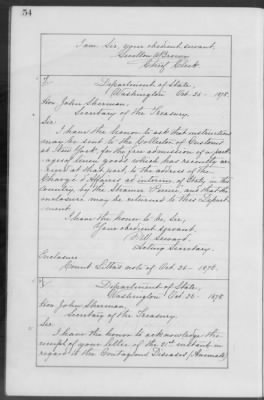 54
I am, Sir, your obedient servant,
Sevellon A. Brown
Chief Clerk
Department of State,
Washington Oct. 25 - 1878.
Hon. John Sherman,
Secretary of the Treasury.
Sir:
I have the honor to ask that instructions
may be sent to the Collector of Customs
at New York, for the free admission of a pack-
age of linen goods which has recently ar-
rived at that port, to the address of the
Chargé d'Affaires ad interim of Italy in this
country, by the Steamer and that the
enclosure may be returned to this Depart-
ment.
I have the honor to be, Sir,
Your obedient servant,
F. W. Seward,
Acting Secretary.
Enclosure.
Count Litta's note of Oct. 24 - 1878.
Department of State,
Washington Oct. 25 - 1878
Hon. John Sherman,
Secretary of the Treasury.
Sir:
I have the honor to acknowledge the
receipt of your letter of the 21st instant in
regard to the Contagious Diseases (Animals)